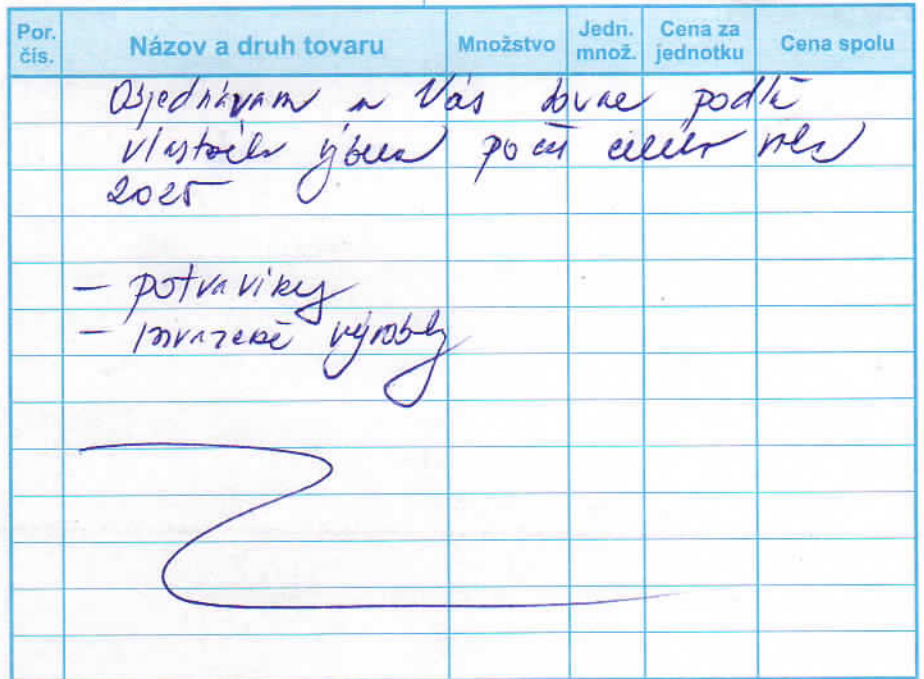 Por. čís. Názov a druh tovaru Množstvo Jedn. množ. Cena za jednotku Cena spolu
Objednávam u Vás tovar podľa
vlastného výberu počas celého roka
2025
- potraviny
- mrazené výrobky